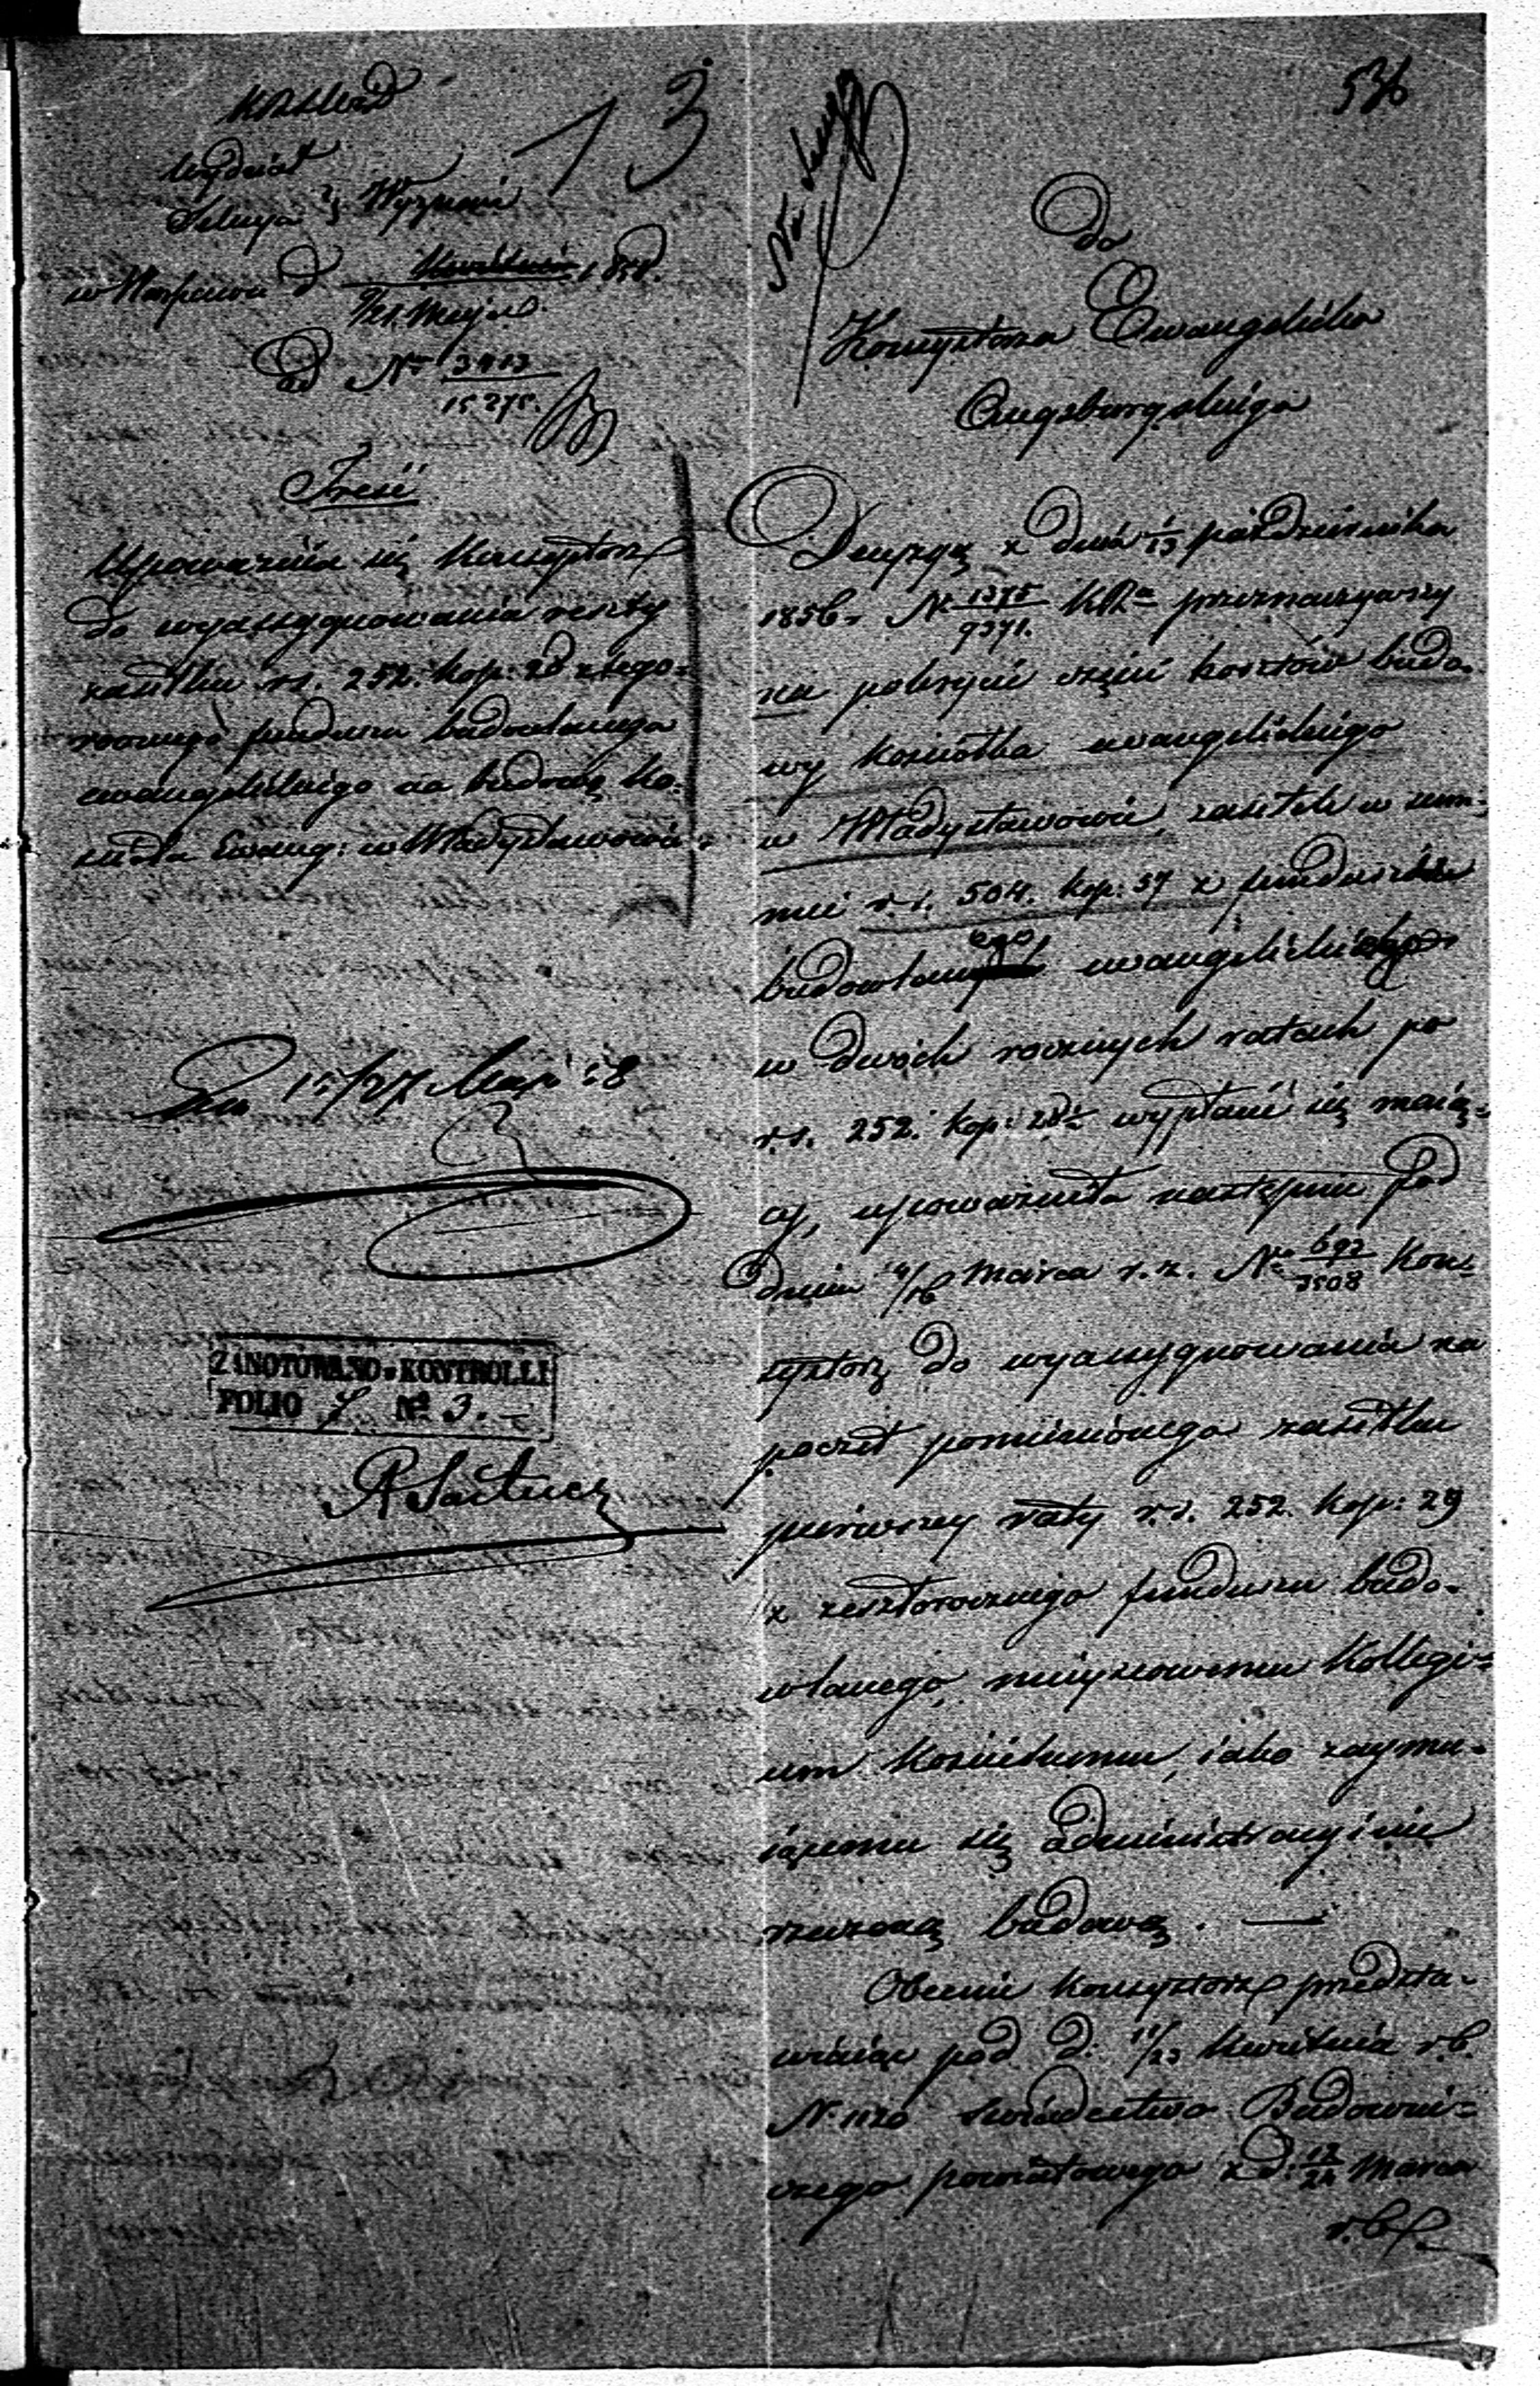 536
13
Wydział
Sekcya Wyznań
w Warszawie d Kwietnia 1858.
9/21 Maja
Ad Nr 3413/15275.
Treść
Upoważnia się Konsystorz
do wyassygnowania reszty
zasiłku rs. 252. kop: 28 z tego-
rocznego funduszu budowlanego
ewangelickiego na budowę ko-
ścioła Ewang: w Władysławowie
15/27 Maja 58
ZANOTOWANO w KONTROLLI
FOLIO 7 No 3.
Do
Konsystorza Ewangelicko
Augsburgskiego
Decyzyą z dnia 1/13 października
1856 r. N 1375/9371. KRz przeznaczywszy
na pokrycie części kosztów budo-
wy kościołka ewangelickiego
w Władysławowie, zasiłek w sum-
mie r.s. 504. kop: 57 z funduszu
budowlanego, ewangelickiego
w dwóch rocznych ratach po
r.s. 252. kop: 28½ wypłacić się mają-
cy, upoważniła następnie pod
dniem 4/16 Marca r.z. No 692/7508 Kon-
systorz do wyassygnowania na
poczet pomienionego zasiłku
pierwszey raty r.s. 252. kop: 29
z zeszłorocznego funduszu budo-
wlanego, mieyscowemu Kollegi-
um Kościelnemu, iako zaymu-
iącemu się administracyinie
rzeczoną budową. —
Obecnie Konsystorz przedsta-
wiaiąc pod d. 11/23 Kwietnia r.b.
N. 1120 świadectwo Budowni-
czego powiatowego z d. 12/24 Marca
r.b.